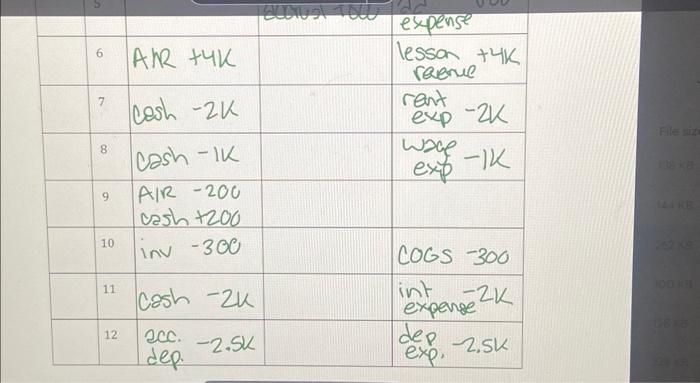 5
accrual
expense
6 A/R +4K lesson +4K
revenue
7 cash -2K rent
exp -2K
8 cash -1K wage
exp -1K
9 A/R -200
cash +200
10 inv -300 COGS -300
11 cash -2K int -2K
expense
12 acc. -2.5K dep
dep. exp. -2.5K
File size
138 KB
144 KB
262 KB